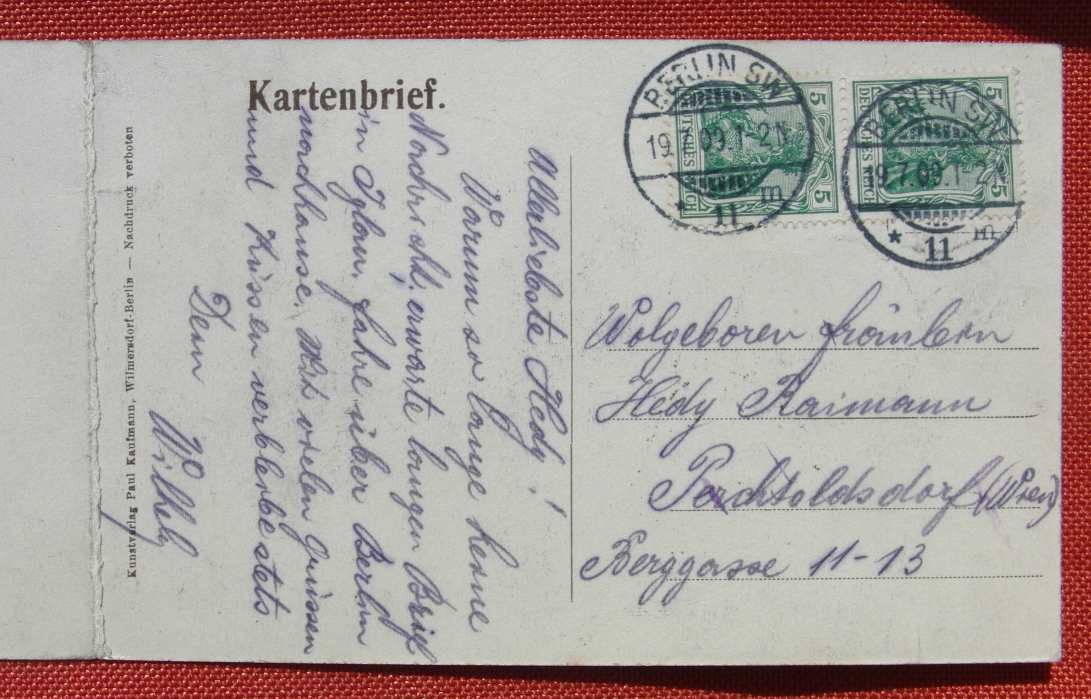 Kartenbrief.
Allerliebste Hedy!
Warum so lange keine
Nachricht, erwarte langen Brief
in Iglau, fahre über Berlin
nachhause. Mit vielen Grüssen
und Küssen verbleibe stets
Dein
Wilhelm
Wolgeboren Fräulein
Hedy Raimann
Perchtoldsdorf (Wien)
Berggasse 11-13
Kunstverlag Paul Kaufmann, Wilmersdorf-Berlin — Nachdruck verboten
BERLIN SW
19. 09.1-2N
* 11 m
BERLIN SW
19.7.09.1-2N
* 11 m
5 DEUTSCHES REICH 5
5 DEUTSCHES REICH 5